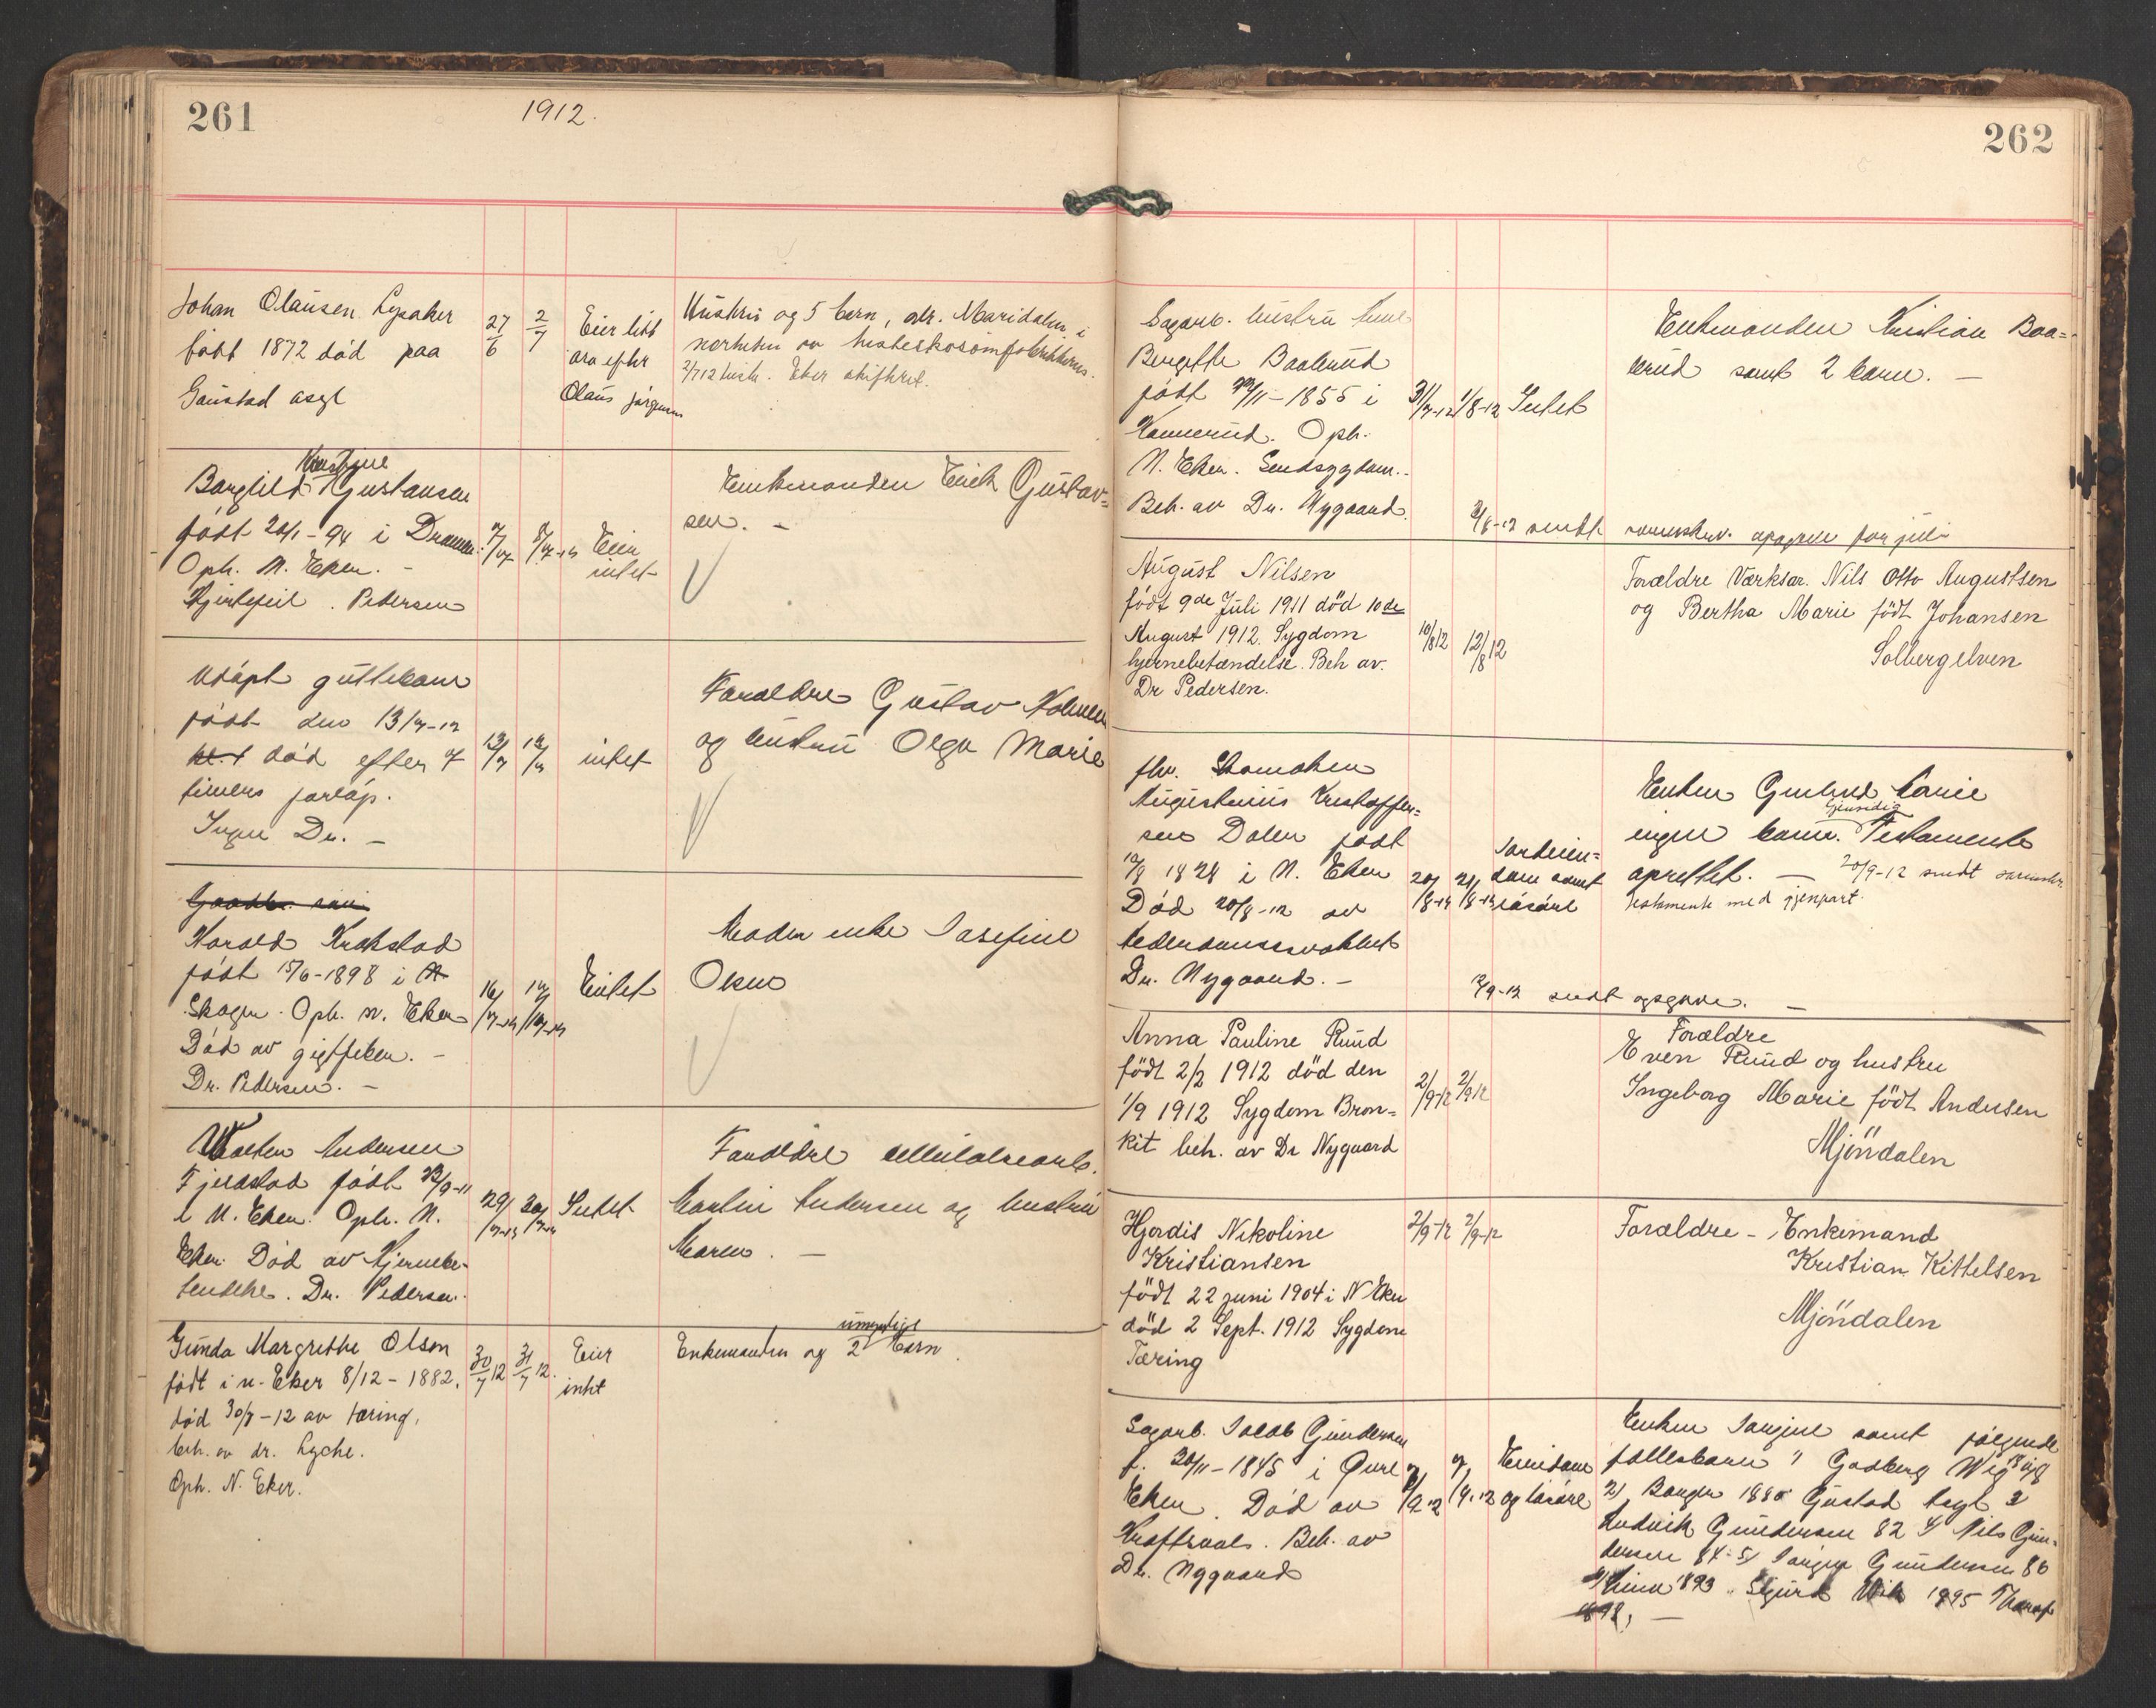 261
1912.
Johan Olausen Lysaker
født 1872 død paa
Gaustad asyl
27/6
2/7
Eier litt
arv efter
Olaus Jørgensen
Hustru og 5 barn, adr. Maridalen i
nærheten av hesteskosømfabrikken.
2/7 12 Eker skifteret.
Kristine
Borghild Gustavsen
født 20/1-94 i Drammen
Oph. N. Eker. -
Hjertefeil. Pedersen
7/7
8/7-12
Eier
intet
Enkemanden Erik Gustav=
sen. -
Udøpt guttebarn
født den 13/7-12
død efter 7
timers forløp.
Ingen Dr. -
13/7
intet
Foreldre Gustav Holmen
og hustru Olga Marie
Harald Krokstad
født 15/6-1898 i
Skoger. Oph. N. Eker
Død av gigtfeber. -
Dr. Pedersen. -
16/7-12
Eintet
Moder enke Josefine
Olsen
Andersen
Fjerdstad født /9-11
i N. Eker. Oph. N.
Eker. Død av Hjernebe-
tendelse. Dr. Pedersen.
29/7-12
30/7-12
Intet
Foreldre cellulosearb.
Martin Andersen og hustru
Maren. -
Gunda Margrethe Olsen
født i n. Eker 8/12-1882.
død 30/7-12 av tæring,
beh. av dr. Lyche.
Oph. N. Eker.
30/7 12
31/7 12.
Eier
intet
umyndige
Enkemanden og 2 barn.
262
Sagarb. hustru Anne
Bergitte Baalerud
født /11-1855 i
Kamerud. Oph.
N. Eker. Sindsygdom.
Beh. av Dr. Nygaard.
31/7-12
1/8-12
Intet
Enkemanden Kristian Baa=
lerud samt 2 barn. -
2/8-12 sendt sorenskr. opgave for juli
August Nilsen
født 9de Juli 1911 død 10de
August 1912. Sygdom
hjernebetændelse. Beh av.
Dr Pedersen.
10/8 12
12/8 12
Forældre Værksar. Nils Otto Augustsen
og Bertha Marie født Johansen
Solbergelven
fhv. Skomaker
Augustinius Kristoffer=
sen Dalen født
1828 i N. Eker
Død 20/8-12 av
alderdomssvakhet
Dr. Nygaard. -
20/8-12
21/8-12
Jordeien=
dom samt
løsøre
Enken Gunhild Marie
Gjensidig
ingen barn. Testamente
oprettet. - 20/9-12 sendt sorenskr.
testamente med gjenpart.
/9-12 sendt opgave. -
Anna Pauline Ruud
født 2/2 1912 død den
1/9 1912 Sygdom Bron=
kit beh. av Dr Nygaard
2/9-12
2/9 12
Forældre
Even Ruud og hustru
Ingeborg Marie født Andersen
Mjöndalen
Hjördis Nikoline
Kristiansen
født 22 juni 1904 i N Eker
död 2 Sept. 1912 Sygdom
Tæring
2/9-12
2/9-12
Forældre - Enkemand
Kristian Kittelsen
Mjöndalen
Sagarb. Jacob Gundersen
f. 30/11-1845 i Øvre
Eker. Død av
Kræftsaar. Beh. av
Dr. Nygaard
/9-12
/9-12
Eiendom
og løsøre
Enken Jørgine samt følgende
fællesbarn
2) 1880 Gustad asyl 3
Ludvik Gundersen 82 4/ Nils Gun=
dersen 84 - 5/ Jørgen Gundersen 86
1893 Sigurd 1895
1898, -